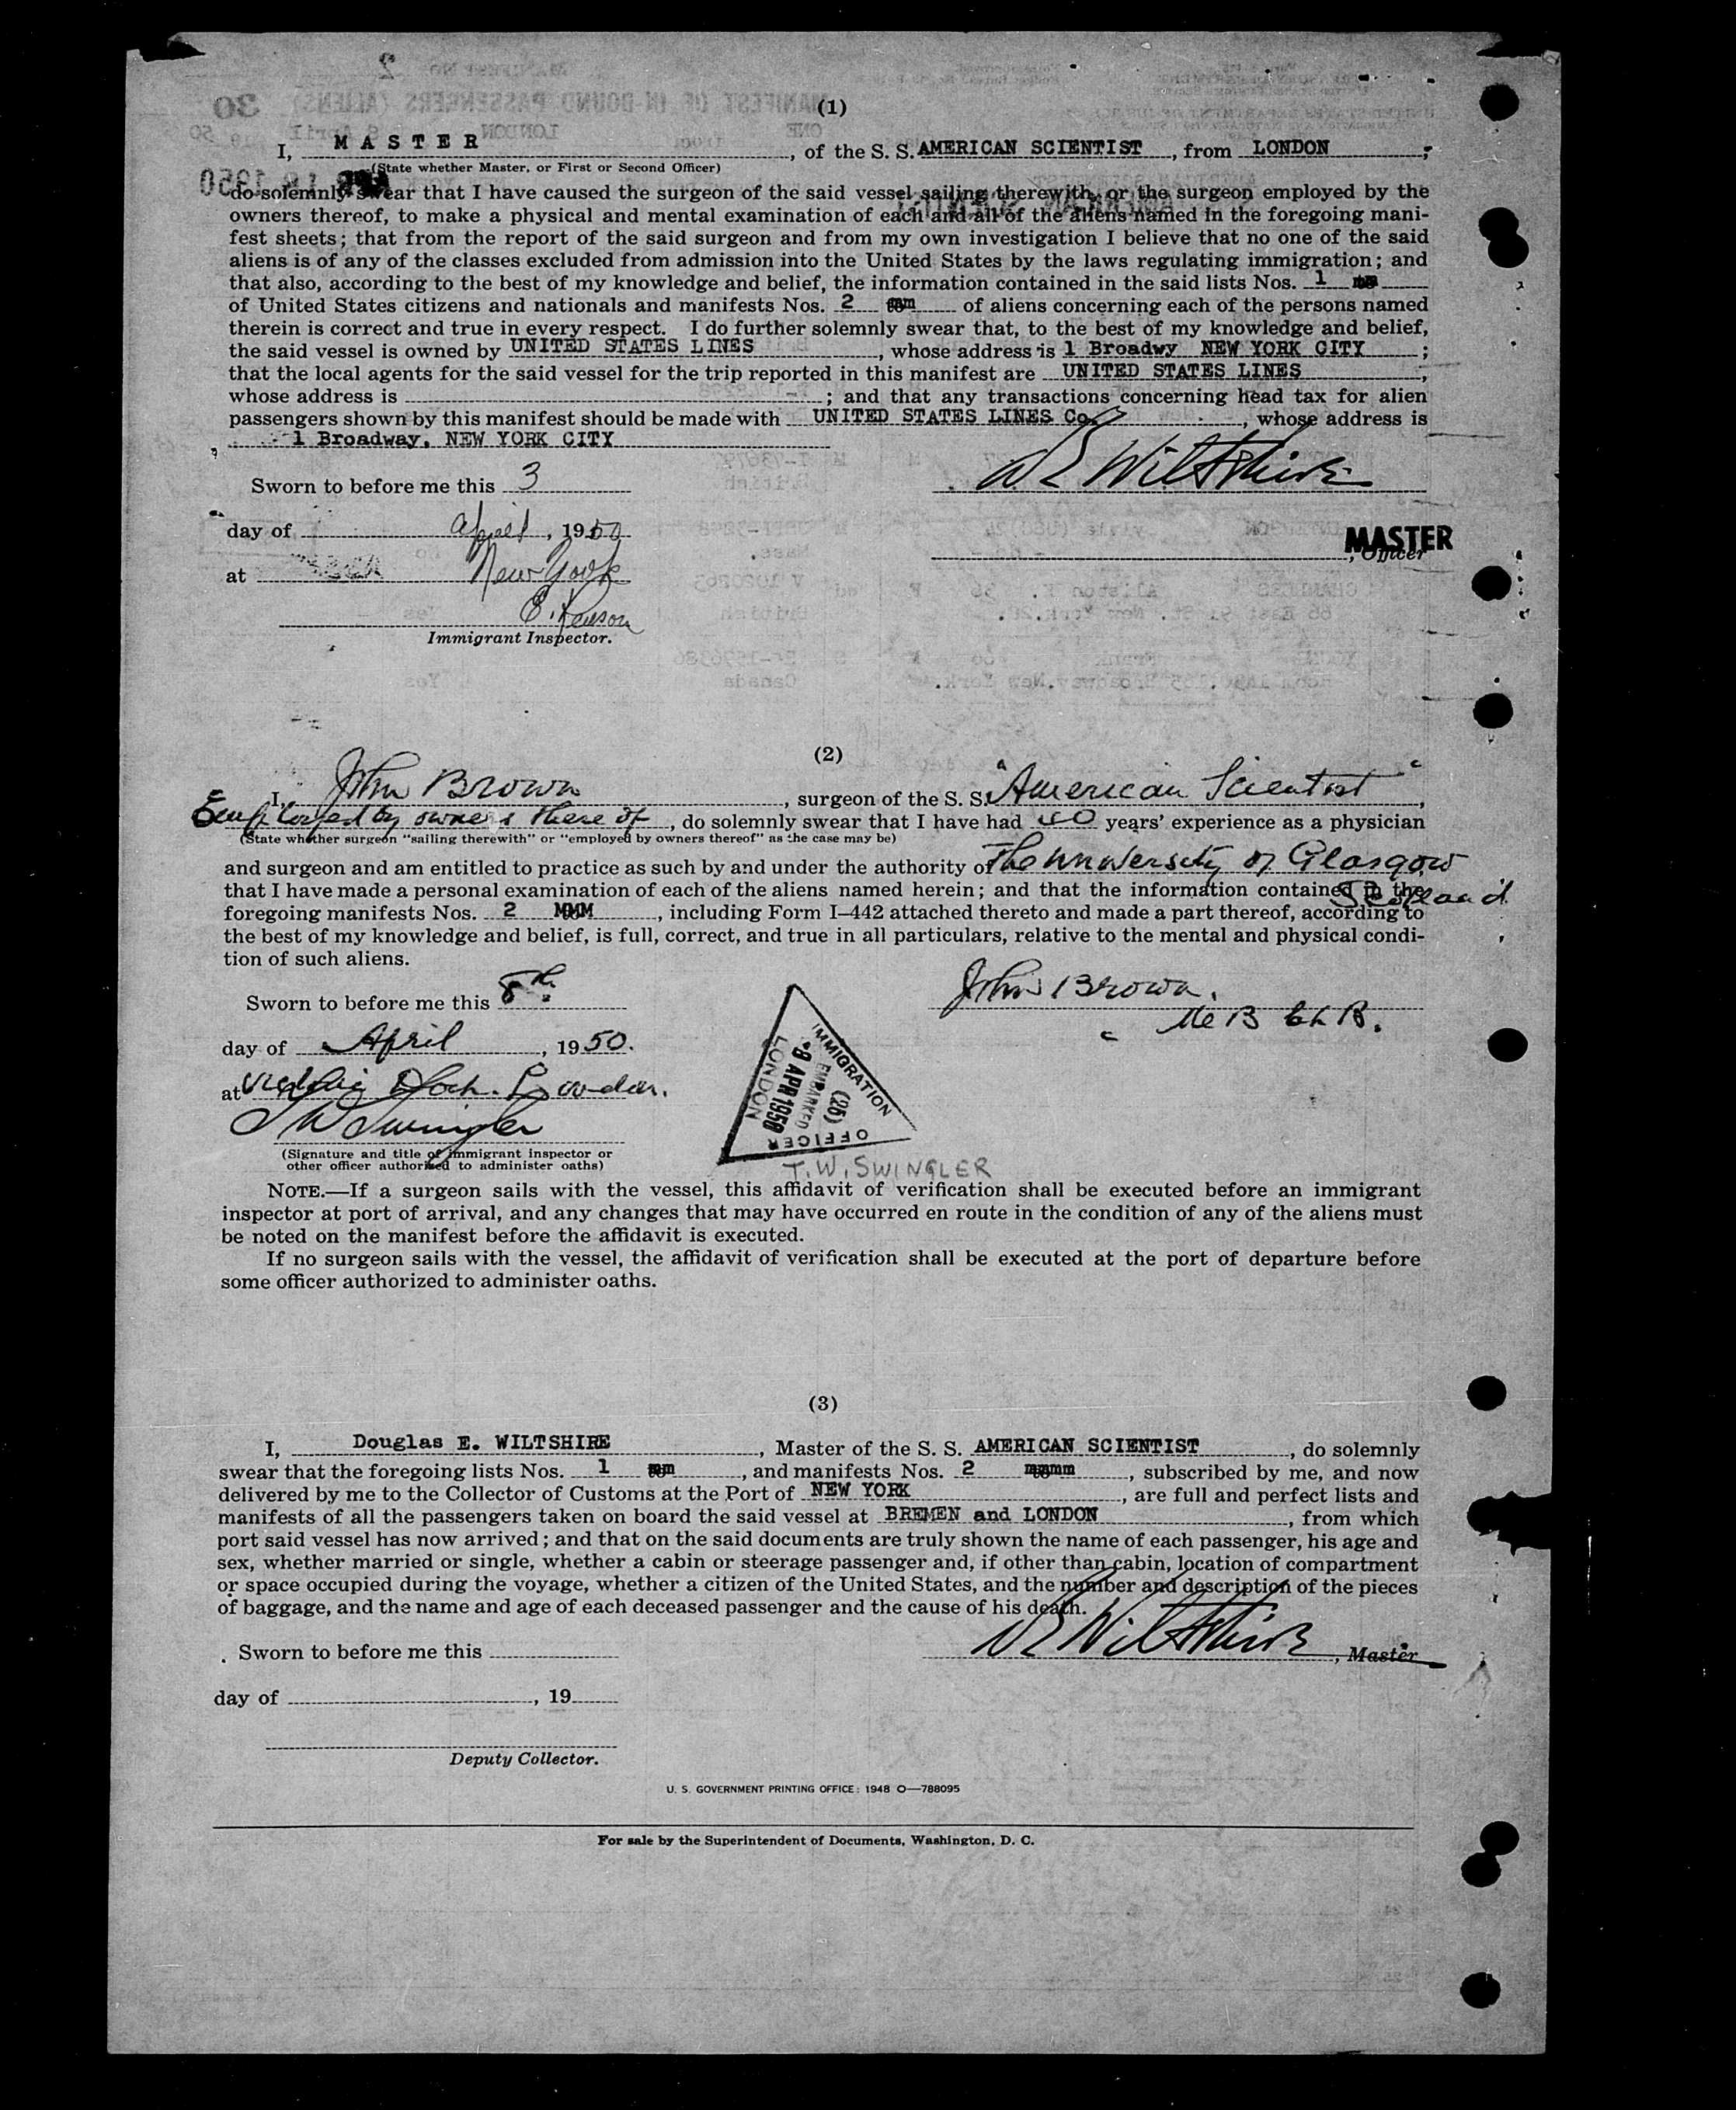 (1)
I, MASTER, of the S. S. AMERICAN SCIENTIST, from LONDON,
(State whether Master, or First or Second Officer)
do solemnly swear that I have caused the surgeon of the said vessel sailing therewith, or the surgeon employed by the
owners thereof, to make a physical and mental examination of each and all of the aliens named in the foregoing mani-
fest sheets; that from the report of the said surgeon and from my own investigation I believe that no one of the said
aliens is of any of the classes excluded from admission into the United States by the laws regulating immigration; and
that also, according to the best of my knowledge and belief, the information contained in the said lists Nos. 1
of United States citizens and nationals and manifests Nos. 2 of aliens concerning each of the persons named
therein is correct and true in every respect. I do further solemnly swear that, to the best of my knowledge and belief,
the said vessel is owned by UNITED STATES LINES, whose address is 1 Broadwy NEW YORK CITY;
that the local agents for the said vessel for the trip reported in this manifest are UNITED STATES LINES,
whose address is ; and that any transactions concerning head tax for alien
passengers shown by this manifest should be made with UNITED STATES LINES Co, whose address is
1 Broadway, NEW YORK CITY
D E Wiltshire
Sworn to before me this 3
day of April, 1950
MASTER
, Officer
at New York
Immigrant Inspector.
(2)
I, John Brown, surgeon of the S. S. "American Scientist",
Employed by owners there of, do solemnly swear that I have had 40 years' experience as a physician
(State whether surgeon "sailing therewith" or "employed by owners thereof" as the case may be)
and surgeon and am entitled to practice as such by and under the authority of The University of Glasgow
Scotland
that I have made a personal examination of each of the aliens named herein; and that the information contained in the
foregoing manifests Nos. 2 MMM, including Form I-442 attached thereto and made a part thereof, according to
the best of my knowledge and belief, is full, correct, and true in all particulars, relative to the mental and physical condi-
tion of such aliens.
Sworn to before me this 8th
John Brown.
M B Ch B.
day of April, 1950.
at Dock. London.
T W Swingler
(Signature and title of immigrant inspector or
other officer authorized to administer oaths)
IMMIGRATION
(25)
EMBARKED
8 APR 1950
LONDON
OFFICER
T. W. SWINGLER
NOTE.—If a surgeon sails with the vessel, this affidavit of verification shall be executed before an immigrant
inspector at port of arrival, and any changes that may have occurred en route in the condition of any of the aliens must
be noted on the manifest before the affidavit is executed.
If no surgeon sails with the vessel, the affidavit of verification shall be executed at the port of departure before
some officer authorized to administer oaths.
(3)
I, Douglas E. WILTSHIRE, Master of the S. S. AMERICAN SCIENTIST, do solemnly
swear that the foregoing lists Nos. 1, and manifests Nos. 2, subscribed by me, and now
delivered by me to the Collector of Customs at the Port of NEW YORK, are full and perfect lists and
manifests of all the passengers taken on board the said vessel at BREMEN and LONDON, from which
port said vessel has now arrived; and that on the said documents are truly shown the name of each passenger, his age and
sex, whether married or single, whether a cabin or steerage passenger and, if other than cabin, location of compartment
or space occupied during the voyage, whether a citizen of the United States, and the number and description of the pieces
of baggage, and the name and age of each deceased passenger and the cause of his death.
D E Wiltshire, Master
Sworn to before me this
day of , 19
Deputy Collector.
U. S. GOVERNMENT PRINTING OFFICE: 1948 O—788095
For sale by the Superintendent of Documents, Washington, D. C.